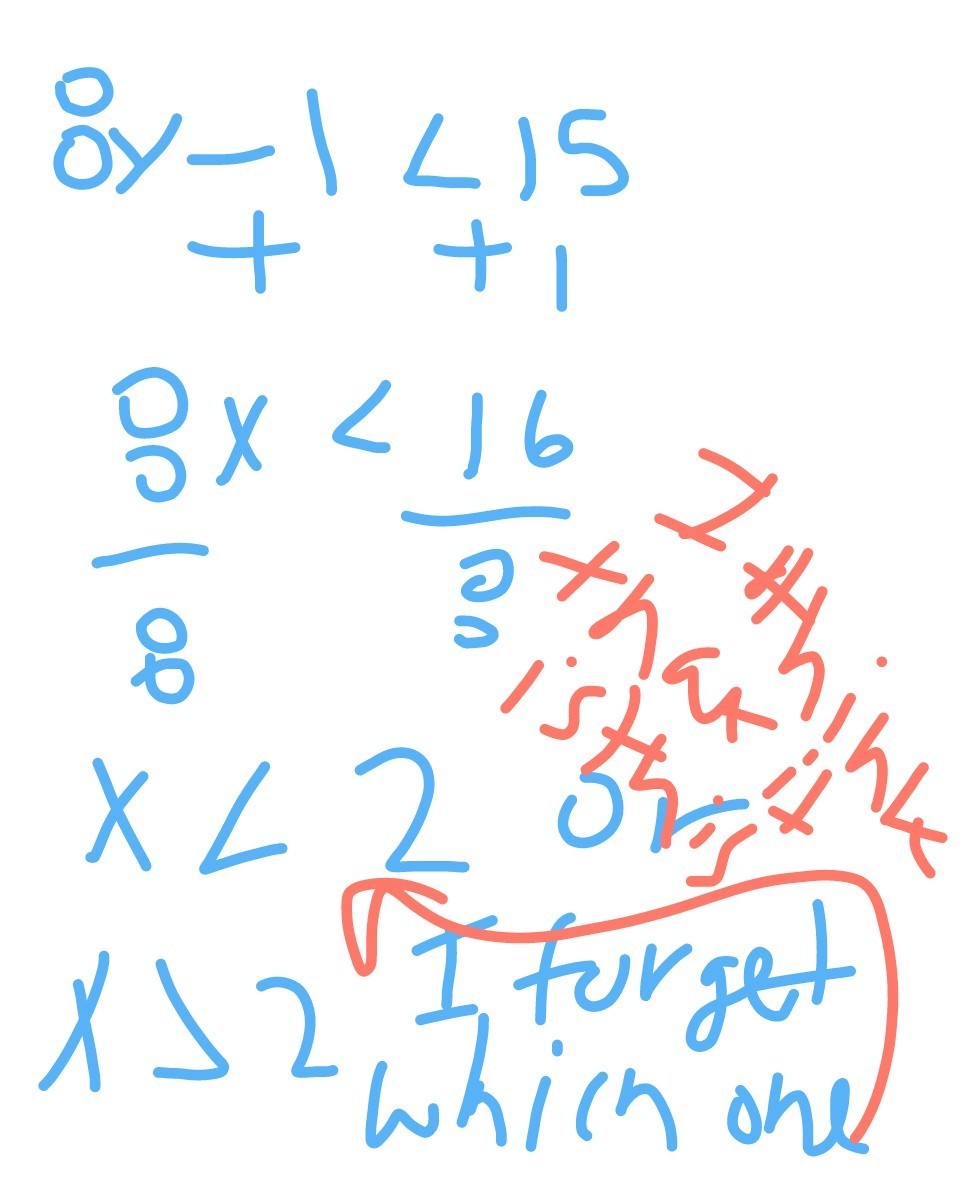 8y - 1 < 15
+ + 1
8x < 16
8 8
x < 2 or
x > 2 I forget
which one
I think
that it
is this